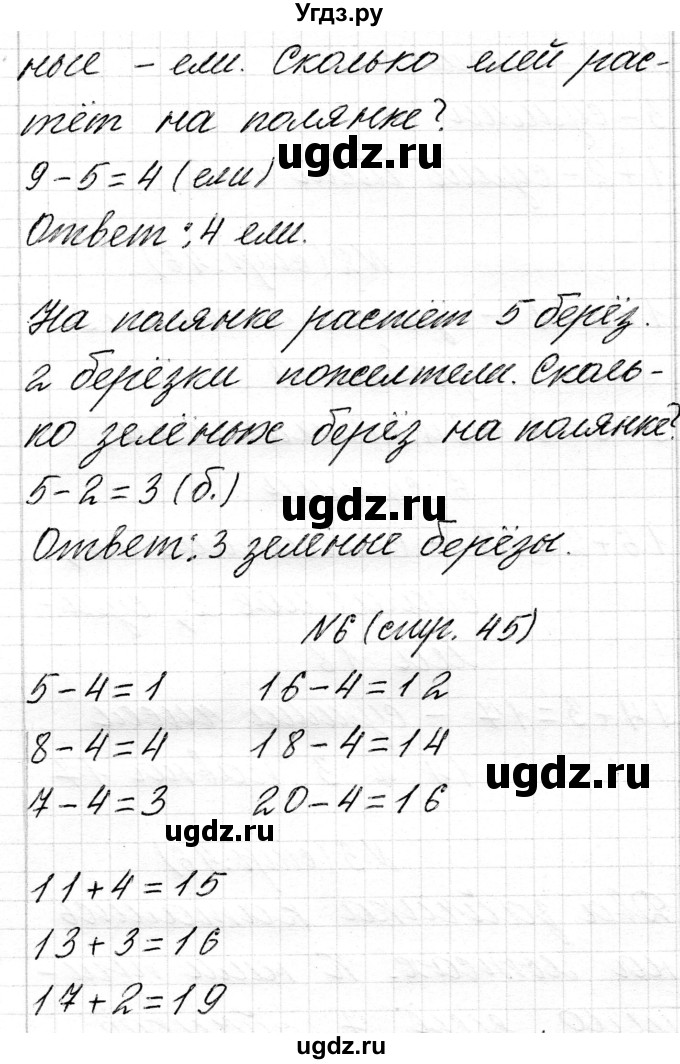 Угдз.ру
ные – ели. Сколько елей рас-
тёт на полянке?
ugdz.ru
9 - 5 = 4 (ели)
Ответ: 4 ели.
На полянке растёт 5 берёз.
2 берёзки пожелтели. Сколь-
ко зелёных берёз на полянке?
5 - 2 = 3 (б.)
ugdz.ru
Ответ: 3 зелёные берёзы.
№6 (стр. 45)
5 - 4 = 1 16 - 4 = 12
8 - 4 = 4 18 - 4 = 14
ugdz.ru
7 - 4 = 3 20 - 4 = 16
ugdz.ru
11 + 4 = 15
13 + 3 = 16
17 + 2 = 19
ugdz.ru